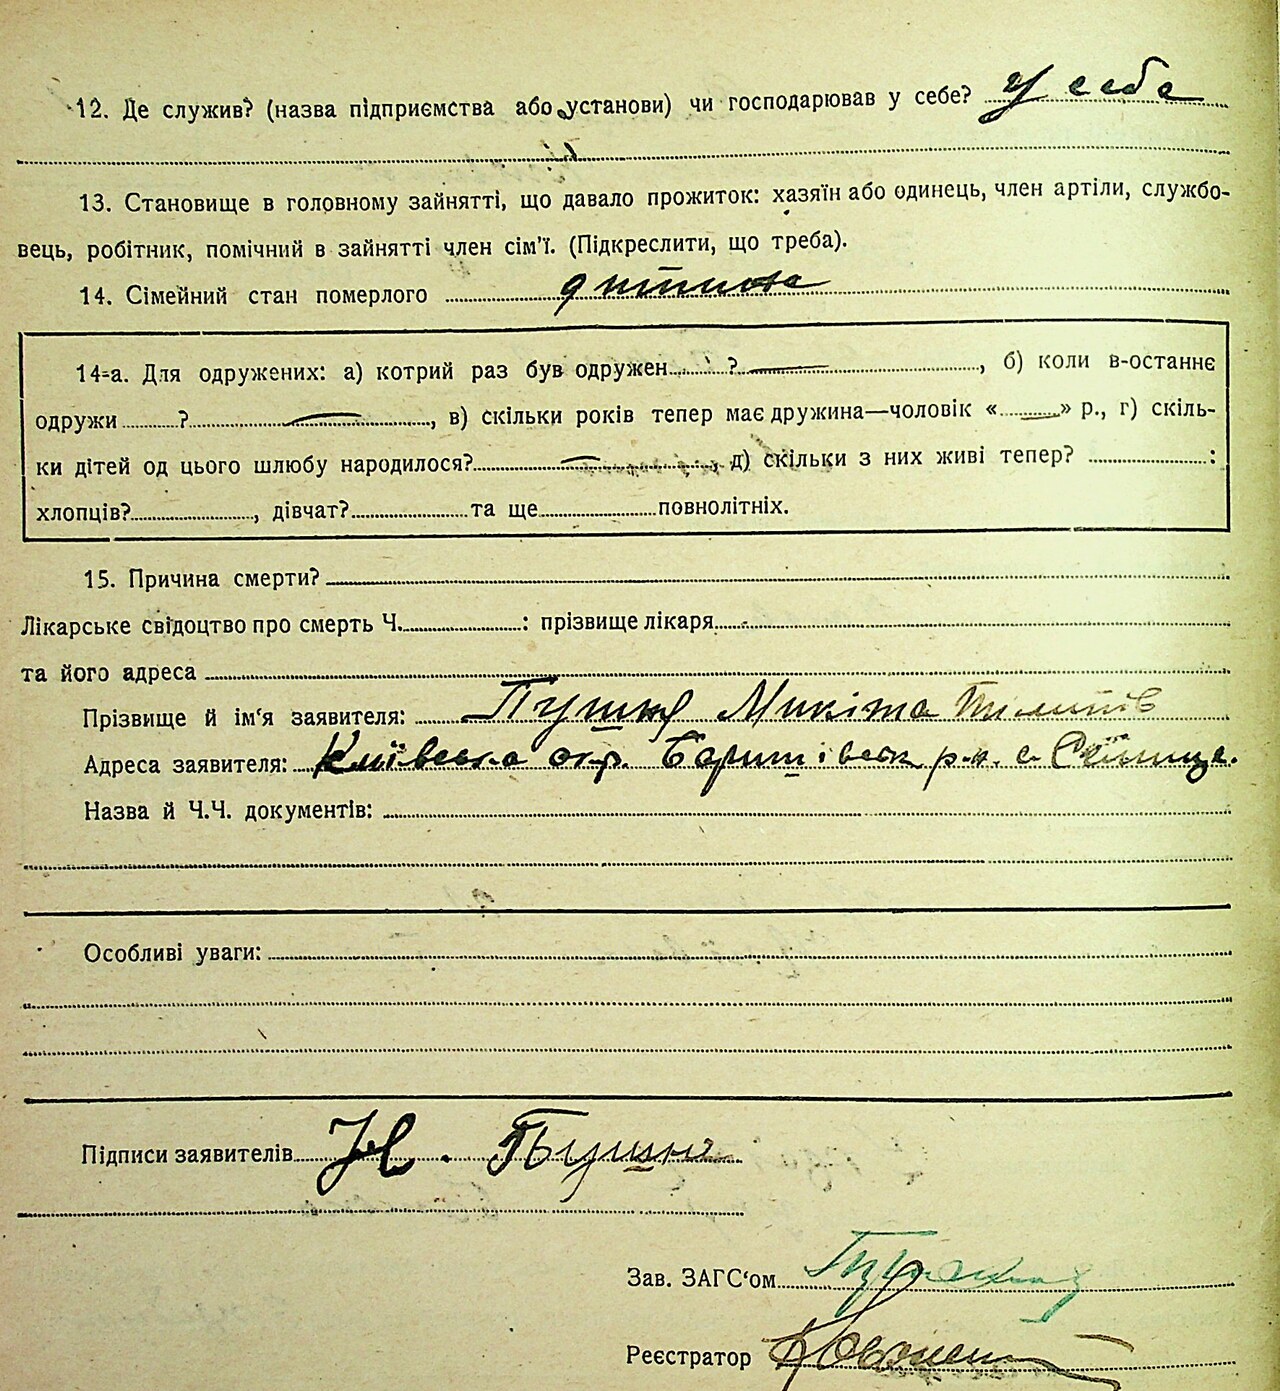 12. Де служив? (назва підприємства або установи) чи господарював у себе? у себе
13. Становище в головному зайнятті, що давало прожиток: хазяїн або одинець, член артіли, службо-
вець, робітник, помічний в зайнятті член сім'ї. (Підкреслити, що треба).
14. Сімейний стан померлого дитина
14-а. Для одружених: а) котрий раз був одружен ? , б) коли в-останнє
одружи ? , в) скільки років тепер має дружина—чоловік « » р., г) скіль-
ки дітей од цього шлюбу народилося? , д) скільки з них живі тепер? :
хлопців? , дівчат? та ще повнолітніх.
15. Причина смерти?
Лікарське свідоцтво про смерть Ч. : прізвище лікаря
та його адреса
Прізвище й ім'я заявителя: Пушня Микіта
Адреса заявителя: Київська окр. Баришівськ р-н. с. Селище.
Назва й Ч.Ч. документів:
Особливі уваги:
Підписи заявителів Н. Пушня
Зав. ЗАГС'ом
Реєстратор